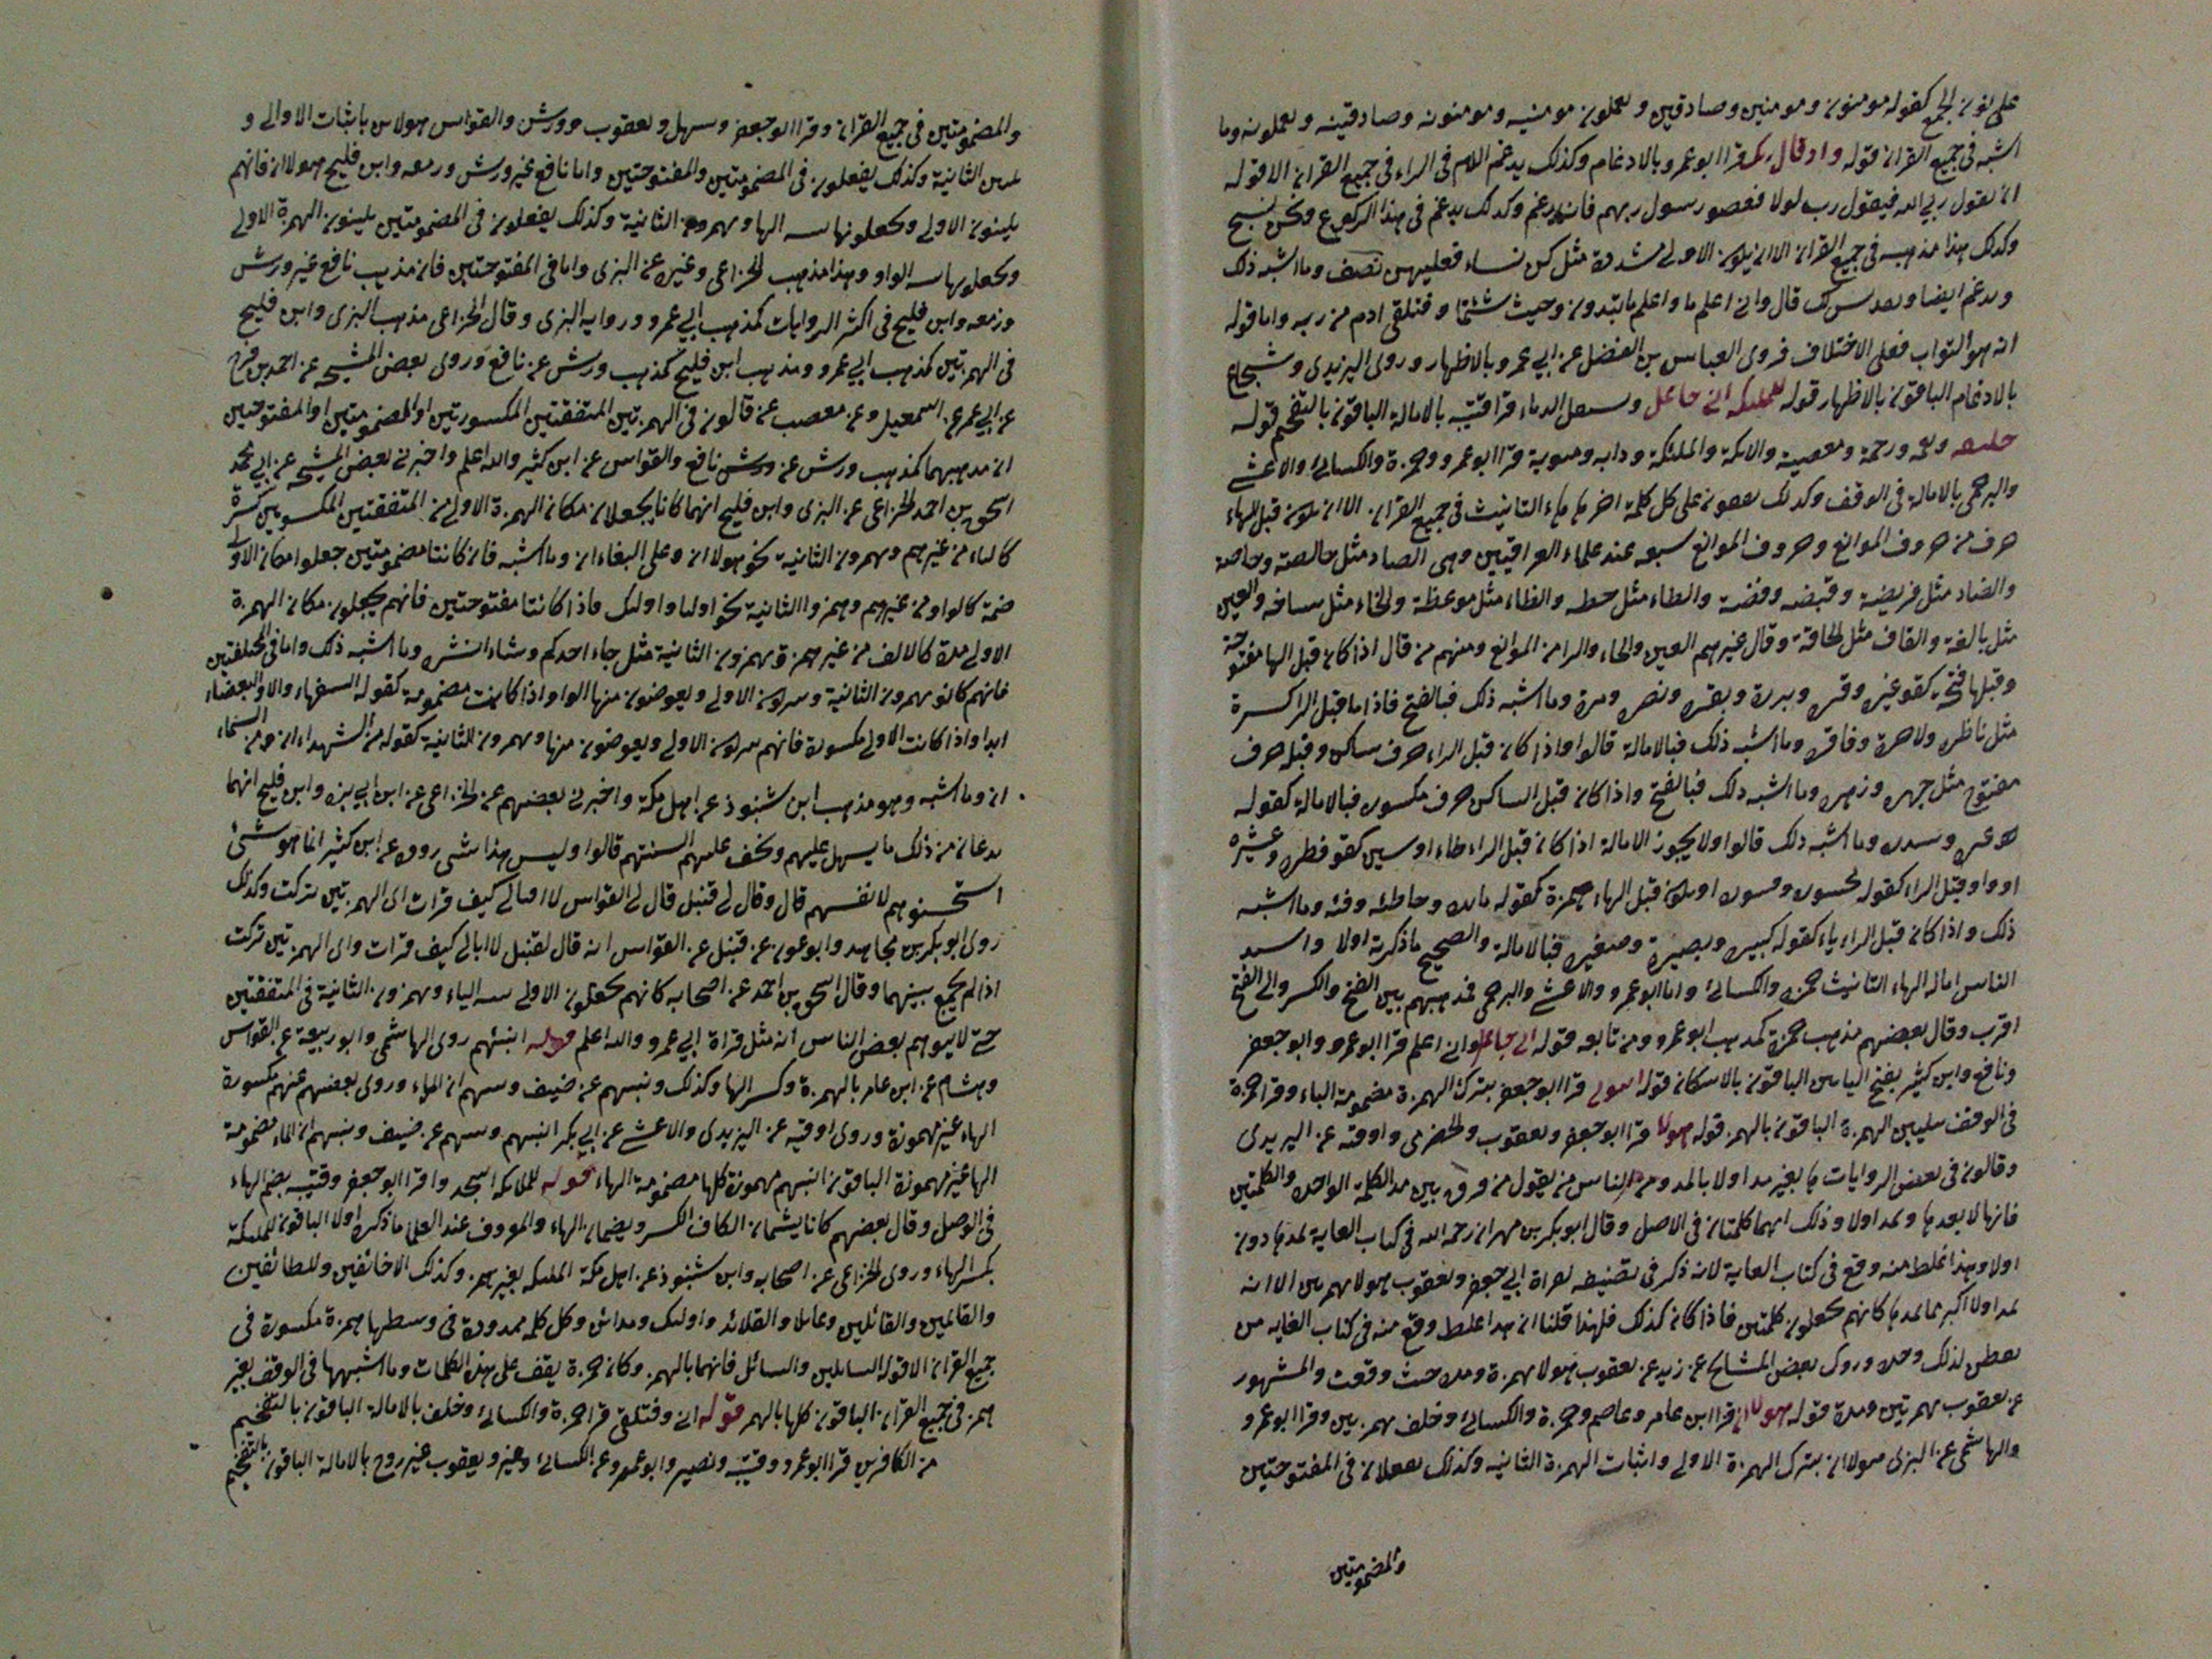 على نون الجمع كقوله مومنون ومومنين وصادقين ويعملون مومنينه ومومنونه وصادقينه ويعملونه وما
اشبه في جميع القران قوله واذ قال ربك قرا ابو عمرو بالادغام وكذلك يدغم اللام في الراء في جميع القران الا قوله
ان يقول ربي الله فيقول رب لولا فعصوا رسول ربهم فانه يدغم وكذلك يدغم في هذا الركوع ونحن نسبح
وكذلك هذا مذهبه في جميع القران الا ان يكون الاولى مشددة مثل كن نساء فعليهن نصف وما اشبه ذلك
ويدغم ايضا ونقدس لك قال واني اعلم ما واعلم ما تبدون وحيث شئتما وفتلقى ادم من ربه واما قوله
انه هو التواب فعلى الاختلاف فروى العباس بن الفضل عن ابي عمرو بالاظهار وروى اليزيدي وشجاع
بالادغام الباقون بالاظهار قوله للملىكه اني جاعل وىسفك الدماء قرا قتيبة بالامالة الباقون بالتفخيم قوله
خليفه ونعمه ورحمة ومعصية والاىكة والملئكة ودابه ومىوية قرا ابو عمرو وحمزة والكسائي والاعشى
والبرجمي بالامالة في الوقف وكذلك يقفون على كل كلمة اخرها هاء التانيث في جميع القران الا ان يكون قبل الهاء
حرف من حروف الموانع وحروف الموانع سبعه عند علماء العراقيين وهي الصاد مثل خالصة وخاصة
والضاد مثل فريضة وقبضه وفضة والطاء مثل حطه والظاء مثل موعظة والخاء مثل والغين
مثل بالغة والقاف مثل الحاقة وقال غيرهم العين والحاء والرا من الموانع ومنهم من قال اذا كان قبل الها مفتوحة
وقبلها فتحة كقو غبرة وقترة وبررة وبقرة ونصرة ومرة وما اشبه ذلك فبالفتح فاذا ما قبل الرا كسرة
مثل ناظرة ولاخرة وفاقرة وما اشبه ذلك فبالامالة قالوا واذا كان قبل الراء حرف ساكن وقبله حرف
مفتوح مثل جهرة وزهرة وما اشبه ذلك فبالفتح واذا كان قبل الساكن حرف مكسور فبالامالة كقوله
وسدرة وما اشبه ذلك قالوا ولا يجوز الامالة اذا كان قبل الراء طاء او سين كقو فطرة وعشيرة
او واو قبل الراء كقوله محسورة او يكون قبل الهاء همزة كقوله وخاطئة وفئة وما اشبه
ذلك واذا كان قبل الراء ياء كقوله كبيرة وبصيرة وصغيرة فبالامالة والصحيح ما ذكرته اولا واشد
الناس امالة الهاء التانيث حمزة والكسائي واما ابو عمرو والاعشى والبرجمي فمذهبهم بين الفتح والكسر والى الفتح
اقرب وقال بعضهم مذهب حمزة كمذهب ابو عمرو ومن تابعه قوله اني جاعل واني اعلم قرا ابو عمرو وابو جعفر
ونافع وابن كثير بفتح الياىن الباقون بالاسكان قوله انبونى قرا ابو جعفر بترك الهمزة مضمومة الباء وقرا حمزة
في الوقف بتليين الهمزة الباقون بالهمز قوله هولا قرا ابو جعفر ويعقوب والحضرمى واوقيه عن اليزيدى
وقالون في بعض الروايات ها بغير مد اولا بالمد ومن الناس من يقول من فرق بين مد الكلمة الواحدة والكلمتين
فانها لا يمد ها ويمد اولا وذلك انهما كلمتان في الاصل وقال ابو بكر بن مهران رحمه الله في كتاب الغاية يمد ها دون
اولا وهذا غلط منه وقع في كتاب الغاية لانه ذكر في تصنيفه قراة ابي جعفر ويعقوب هولا الا انه
يمد اولا اكبر مما يمد ها كانهم يجعلون كلمتين فاذا كان كذلك فلهذا قلنا ان هذا غلط وقع منه في كتاب الغايه من
لذلك وروى بعض المشائخ عن زيد عن يعقوب هولا بهمزة ومد حيث وقعت والمشهور
عن يعقوب بهمزتين ومدة قوله هولا ان قرا ابن عامر وعاصم وحمزة والكسائي وخلف بهمزتين وقرا ابو عمرو
والهاشمى عن البزى هولا ان بترك الهمزة الاولى واثبات الهمزة الثانية وكذلك يفعلان في المفتوحتين
والمضمومتين
والمضمومتين في جميع القران وقرا ابو جعفر وسهل ويعقوب وورش والقواس هولاىن باثبات الاولى و
تليين الثانية وكذلك يفعلون في المضمومتين والمفتوحتين واما نافع غير ورش وزمعه وابن فليح هولا ان فانهم
يلينون الاولى ويجعلونها شبه الها ويهمزون الثانية وكذلك يفعلون في المضمومتين يلينون الهمزة الاولى
ويجعلونها شبه الواو وهذا مذهب الخزاعى وغيره عن البزى واما في المفتوحتين فان مذهب نافع غير ورش
وزمعه وابن فليح في اكثر الروايات كمذهب ابي عمرو وروايه البزى وقال الخزاعى مذهب البزى وابن فليح
في الهمزتين كمذهب ابي عمرو ومذهب ابن فليح كمذهب ورش عن نافع وروى بعض المشيخه عن احمد بن فرح
عن ابي عمر عن اسمعيل وعن مصعب عن قالون في الهمزتين المتفقتين المكسورتين او المضمومتين او المفتوحتين
ان مذهبهما كمذهب ورش عن ورش نافع والقواس عن ابن كثير والله اعلم واخبرني بعض المشيخه عن ابي محمد
اسحق بن احمد الخزاعى عن البزى وابن فليح انهما كانا يجعلان مكان الهمزة الاولى من المتفقتين المكسورتين كسرة
كالياء من غير همز ويهمزون الثانية نحو هولا ان وعلى البغاء ان وما اشبه فان كانتا مضمومتين جعلوا مكان الاولى
ضمة كالواو من غير همز وهمزوا الثانية نحو اوليا واولىك فاذا كانتا مفتوحتين فانهم يجعلون مكان الهمزة
الاولى مدة كالالف من غير همزة ويهمزون الثانية مثل جاء احدكم وشاء انشره وما اشبه ذلك واما في المختلفتين
فانهم كانو يهمزون الثانية ويتركون الاولى ويعوضون منها الواو اذا كانت مضمومة كقوله السفهاء والا والبغضاء
ابدا واذا كانت الاولى مكسورة فانهم يتركون الاولى ويعوضون منها ويهمزون الثانية كقوله من الشهداء ان ومن السماء
ان وما اشبه وهو مذهب ابن شنبوذ عن اهل مكة واخبرني بعضهم عن الخزاعى عن ابن ابي بزه وابن فليح انهما
يدعان من ذلك ما يسهل عليهم ويخف عليهم السنتهم قالوا وليس هذا شى روى عن ابن كثير انما هو شئ
استحسنوهم لانفسهم قال وقال لي قنبل قال لي القواس لا ابالي كيف قرات اى الهمزتين تركت وكذلك
روى ابو بكر بن مجاهد وابو عون عن قنبل عن القواس انه قال لقنبل لا ابالي كيف قرات واى الهمزتين تركت
اذا لم يجمع بينهما وقال اسحق بن احمد عن اصحابه كانهم يجعلون الاولى شبه الياء ويهمزون الثانية في المتفقتين
حتى لا يتوهم بعض الناس انه مثل قراة ابي عمرو والله اعلم قوله انبئهم روى الهاشمى وابو ربيعة عن القواس
وهشام عن ابن عامر بالهمزة وكسر الها وكذلك ونبئهم عن ضيف ان الهاء وروى بعضهم عنهم مكسورة
الهاء غير مهموزة وروى اوقيه عن اليزيدى والاعشى عن ابي بكر انبئهم ونبئهم عن ضيف ونبئهم ان الماء مضمومة
الها غير مهموزة الباقون انبئهم مهموزة كلها مضمومة الهاء قوله للملائكة اسجدوا قرا ابو جعفر وقتيبه بضم الهاء
في الوصل وقال بعضهم كانا يشمان الكاف الكسر ويضمان الهاء والمعروف عند العلما ما ذكره اولا الباقون للملىكة
بكسر الهاء وروى الخزاعى عن اصحابه وابن شنبوذ عن اهل مكة الملىكه بغير همز وكذلك الا خائفين وللطائفين
والقائمين والقائلين وعائلا والقلائد واولىك ومدائن وكل كلمه ممدودة في وسطها همزة مكسورة في
جميع القران الا قوله السائلين والسائل فانهما بالهمز وكان حمزة يقف على هذه الكلمات وما اشبهها في الوقف بغير
همز في جميع القران الباقون كلها بالهمز قوله اني وفتلقى قرا حمزة والكسائي وخلف بالامالة الباقون بالتفخيم
من الكافرين قرا ابو عمرو وقتيبه ونصير وابو عمرو عن الكسائي وغير ويعقوب غير روح بالامالة الباقون بالتفخيم